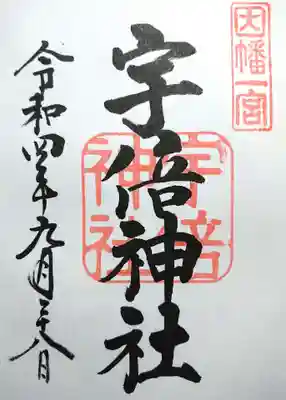 因幡一宮
宇倍神社
宇倍神社
令和四年九月二十八日